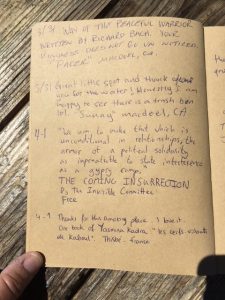 3/31 WAY OF THE PEACEFUL WARRIOR
WRITTEN BY RICHARD BACH. YOUR
KINDNESS DOES NOT GO UN NOTICED.
"PACER"
3/31 Great little spot and thank
you for the water! Honestly I am
happy to see there is a trash bin
lol. "Sunny" CA
4-1 "We aim to make that which is
unconditional in relationships, the
armor of a political solidarity
as impenetrable to state interference
as a gypsy camp."
THE COMING INSURRECTION
By The Invisible Committee
Free
4-1 Thanks for this amazing place. I love it.
One book of Yasmina Kadra "les
de Kaboul". France